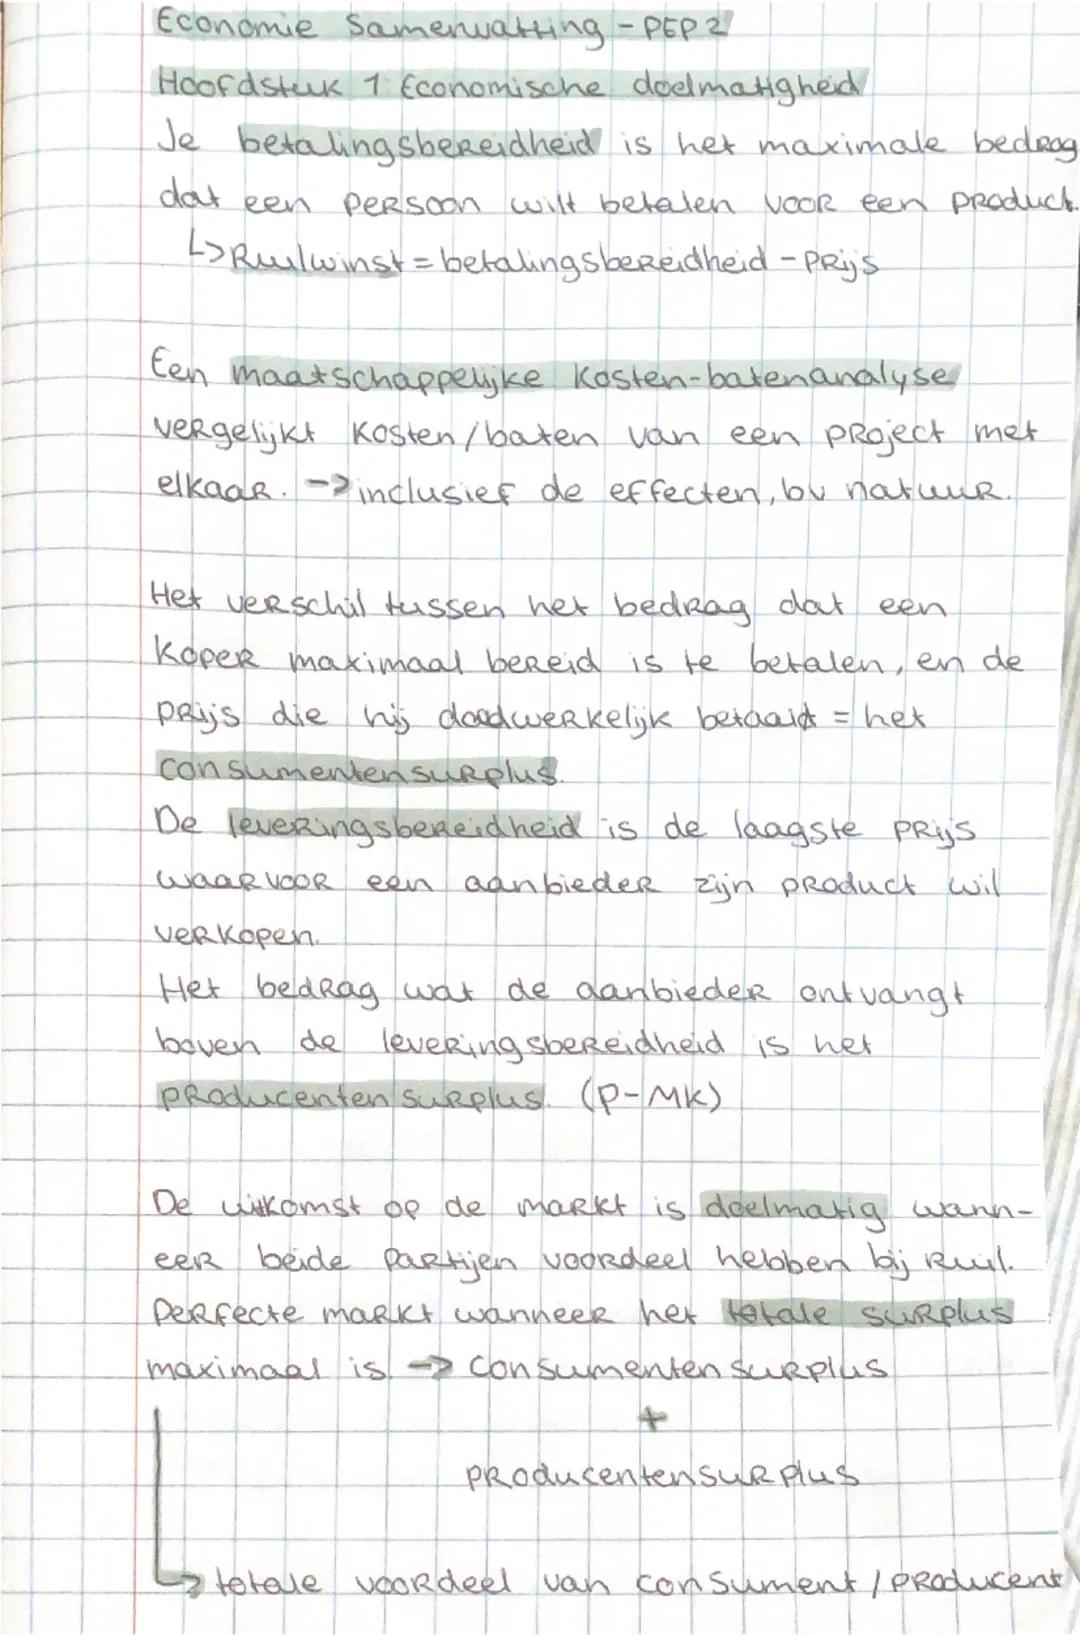 Economie Samenvatting - PEP 2
Hoofdstuk 1: Economische doelmatigheid
Je betalingsbereidheid is het maximale bedrag
dat een persoon wilt betalen voor een product.
↳ Ruilwinst = betalingsbereidheid - prijs
Een maatschappelijke kosten-batenanalyse
vergelijkt kosten/baten van een project met
elkaar. -> inclusief de effecten, bv natuur.
Het verschil tussen het bedrag dat een
koper maximaal bereid is te betalen, en de
prijs die hij daadwerkelijk betaald = het
consumentensurplus.
De leveringsbereidheid is de laagste prijs
waarvoor een aanbieder zijn product wil
verkopen.
Het bedrag wat de aanbieder ontvangt
boven de leveringsbereidheid is het
producentensurplus. (P-MK)
De uitkomst op de markt is doelmatig wann-
eer beide partijen voordeel hebben bij ruil.
Perfecte markt wanneer het totale surplus
maximaal is -> consumentensurplus
+
producentensurplus
↳ totale voordeel van consument / producent